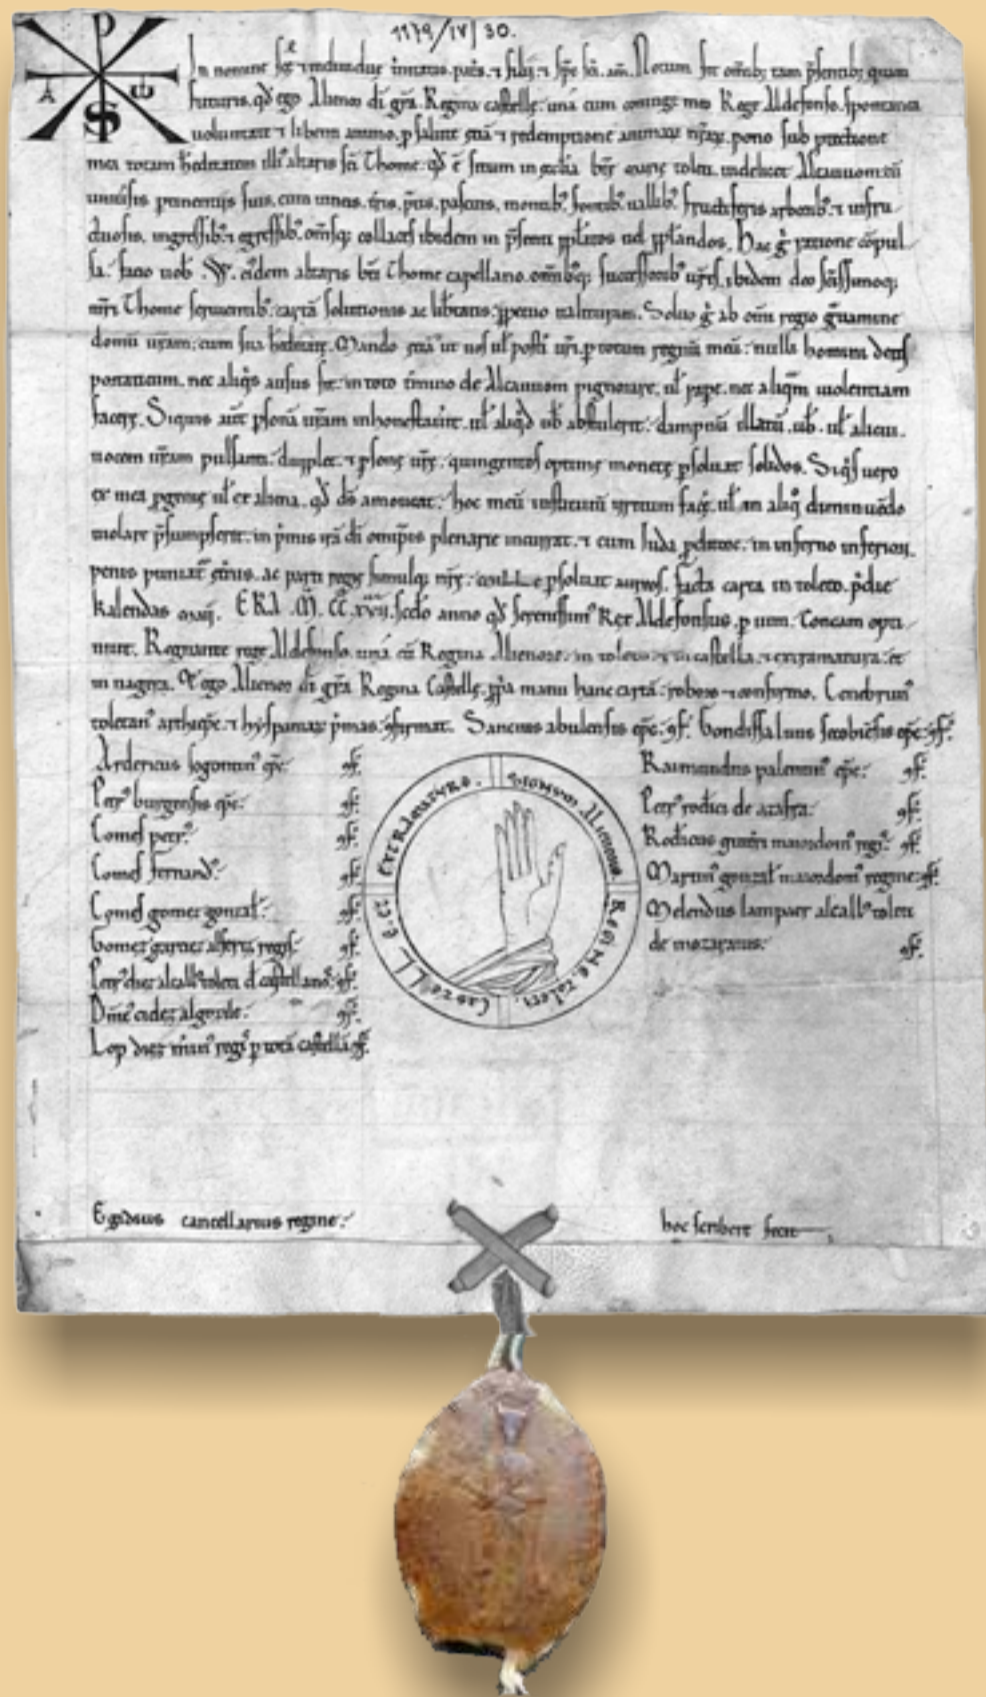 1179/IV/30.
In nomine sce et indiuidue trinitatis. patris. et filii. et sps sci. am. Notum sit omibz tam psentibz quam
futuris. qd ego Alienor di gra. Regina castelle. una cum coniuge meo Rege Aldefonso. spontanea
uoluntate et libenti animo. p salute mea et redemptione animaz nraz. pono sub ptectione
mea totam hereditatem illi altaris sci Thome. qd e situm in ecclia
uniuersis pertinentijs suis. cum terris. pascuis. montib. fontib. uallib. fructiferis arborib. et infru
ctuosis. ingressib. et egressib. omisq; collacis ibidem in psenti pplatos uel pplandos. Hac g ratione copul
sa. facio uob .W. eidem altaris bti Thome capellano. omibq; successorib uris. ibidem deo sctissimoq;
mri Thome seruientib. carta solutionis ac libtatis. ppetuo ualituram. Soluo g ab omi regio grauamine
domu uram. cum sua hereditate. Mando etia ut nos ul posti uri. p totum regnu meu. nulli homini detis
portaticum. nec aliqis ausus sit. in toto tmino de Alcauuom pignorare. ul rape. nec aliqam uiolentiam
facere. Siquis aut psona uram inhonestauit. ul aliqd ub abstulerit. dampnu illatu. ub. ul alicui.
uocem uram pulsanti. dupplet. et psone ure. quingentos optime monete psoluat solidos. Siqs uero
ex mea pgenie ul ex aliena. qd ds amoueat. hoc meu institutu irritum face. ul in aliqo diminuendo
uiolare psumpserit. in pmis ira di omiptis plenarie incurrat. et cum Iuda pditore. in inferno inferiori.
penis puniat. ac parti regis simulq; mille psoluat aureos. facta carta in toleto. pdie
kalendas maij. ERA .M. CC. xvii. sedo anno qd serenissim Rex Aldefonsus. p uim. Concam opti
nuit. Regnante rege Aldefonso. una cu Regina Alienore. in toleto. et in castella. et extramatura. et
in nagera. Et ego Alienor di gra Regina Castelle. ppia manu hanc carta. roboro et confirmo. Cenebrun
toletan archieps. et hyspaniaz pmas. 9firmat. Sancius abulensis eps. 9f. Gondissaluus secobiesis eps. 9f.
Ardericus segontin eps. 9f.
Petr burgensis eps. 9f.
Comes petr. 9f.
Comes fernand. 9f.
Comes gomez gonzal. 9f.
Gomez garciez alferiz regis. 9f.
Petr diez alcalls toleti d castellanos. 9f.
Dnic cidez algozile. 9f.
Lop diez merin regis p tota castella 9f.
Signum Alienoris Regine. Toleti. Castelle. et Extramature.
Raimundus palentin eps. 9f.
Petr rodici de azafra. 9f.
Rodicus guterri maiordom regis. 9f.
Martin gonzal maiordom regine. 9f.
Melendus lampaer alcalls toleti
de mozarauis. 9f.
Egidius cancellarius regine.
hoc scribere fecit